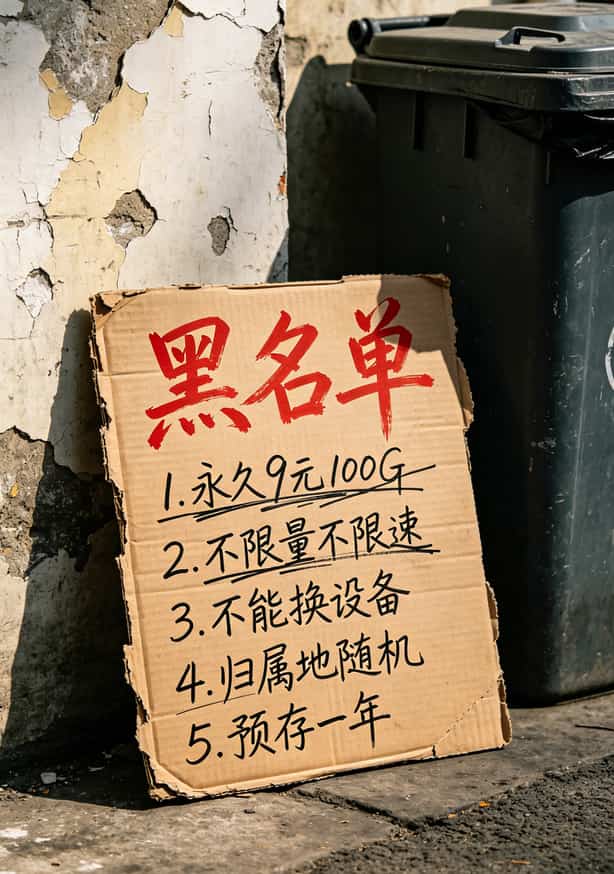 黑名单
1.永久9元100G
2.不限量不限速
3.不能换设备
4.归属地随机
5.预存一年